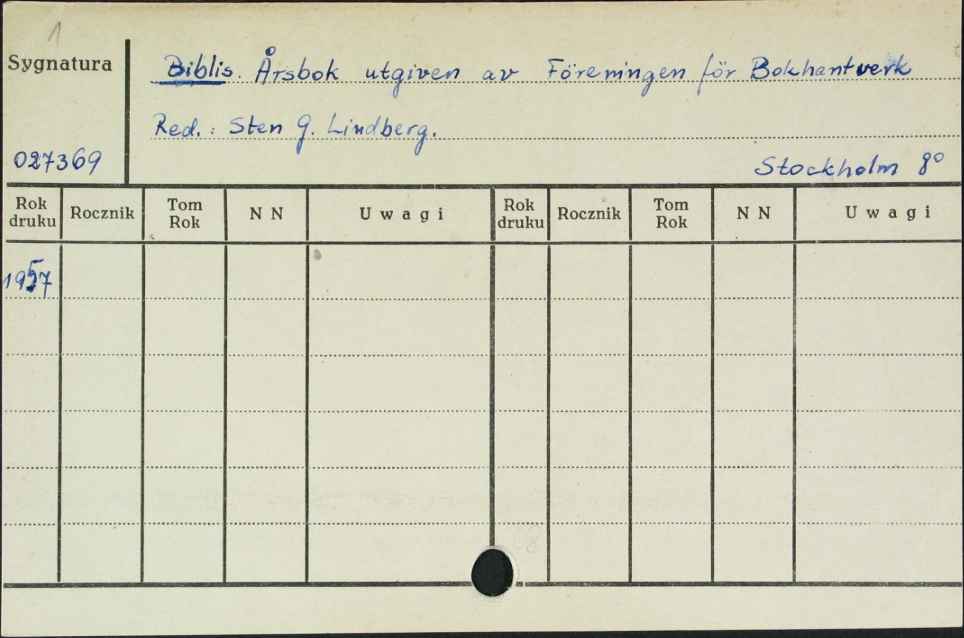 1
Sygnatura
Biblis. Årsbok utgiven av Föreningen för Bokhantverk
Red.: Sten G. Lindberg.
027369
Stockholm 8°
Rok druku Rocznik Tom Rok N N Uwagi Rok druku Rocznik Tom Rok N N Uwagi
1957